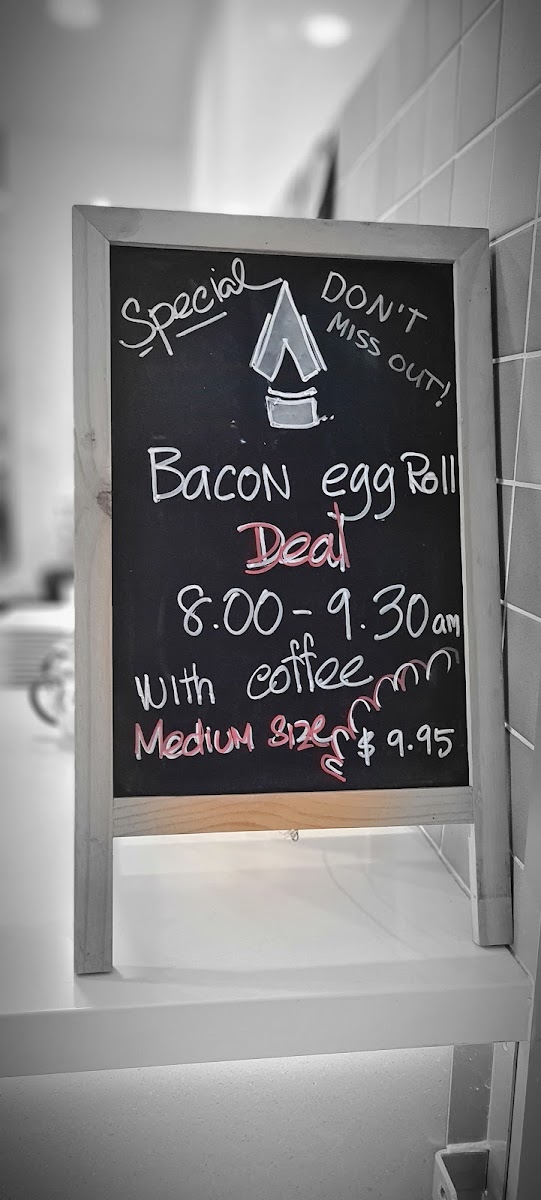 Special
DON'T
MISS OUT!
Bacon egg Roll
Deal
8.00 - 9.30 am
with coffee
Medium size $ 9.95